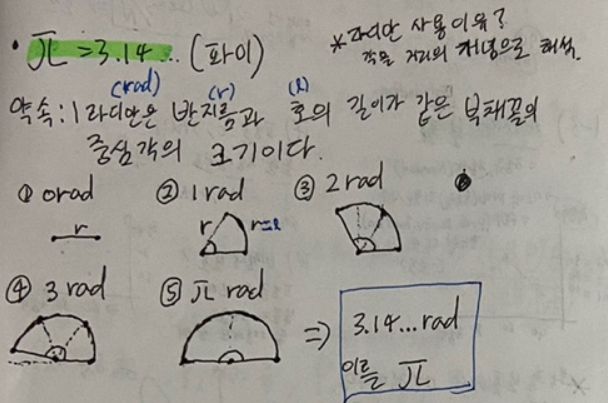 • π = 3.14... (파이)
* 라디안 사용이유?
각을 거리의 개념으로 해석.
(rad) (r) (l)
약속 : 1 라디안은 반지름과 호의 길이가 같은 부채꼴의
중심각의 크기이다.
① 0rad ② 1 rad ③ 2 rad
r r r=l
④ 3 rad ⑤ π rad
⇒ 3.14...rad
이를 π